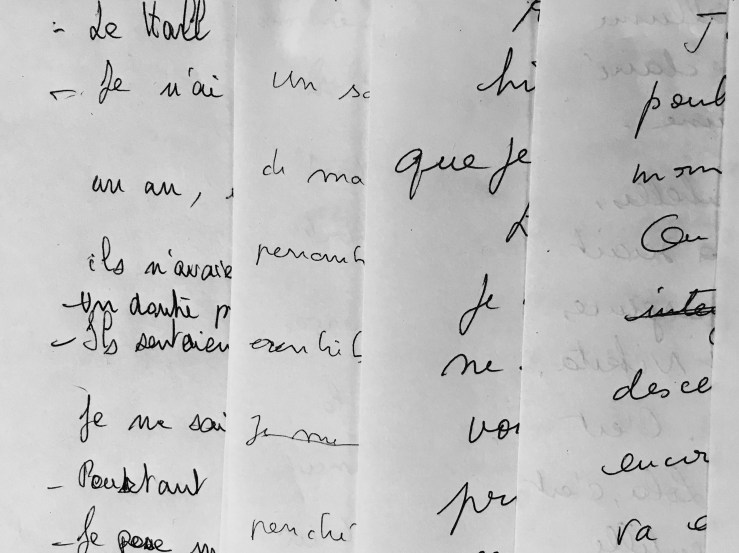 - Le Hall
- Je n'ai
un an,
ils n'avaie
un doute p
- Ils sentaien
Je ne sai
- Pourtant
- Je pose
un so
di ma
penomb
Je me
penché
hi
que Je
Je
ne
voi
pr
J
poub
mom
Ou
inte
desce
encor
va e